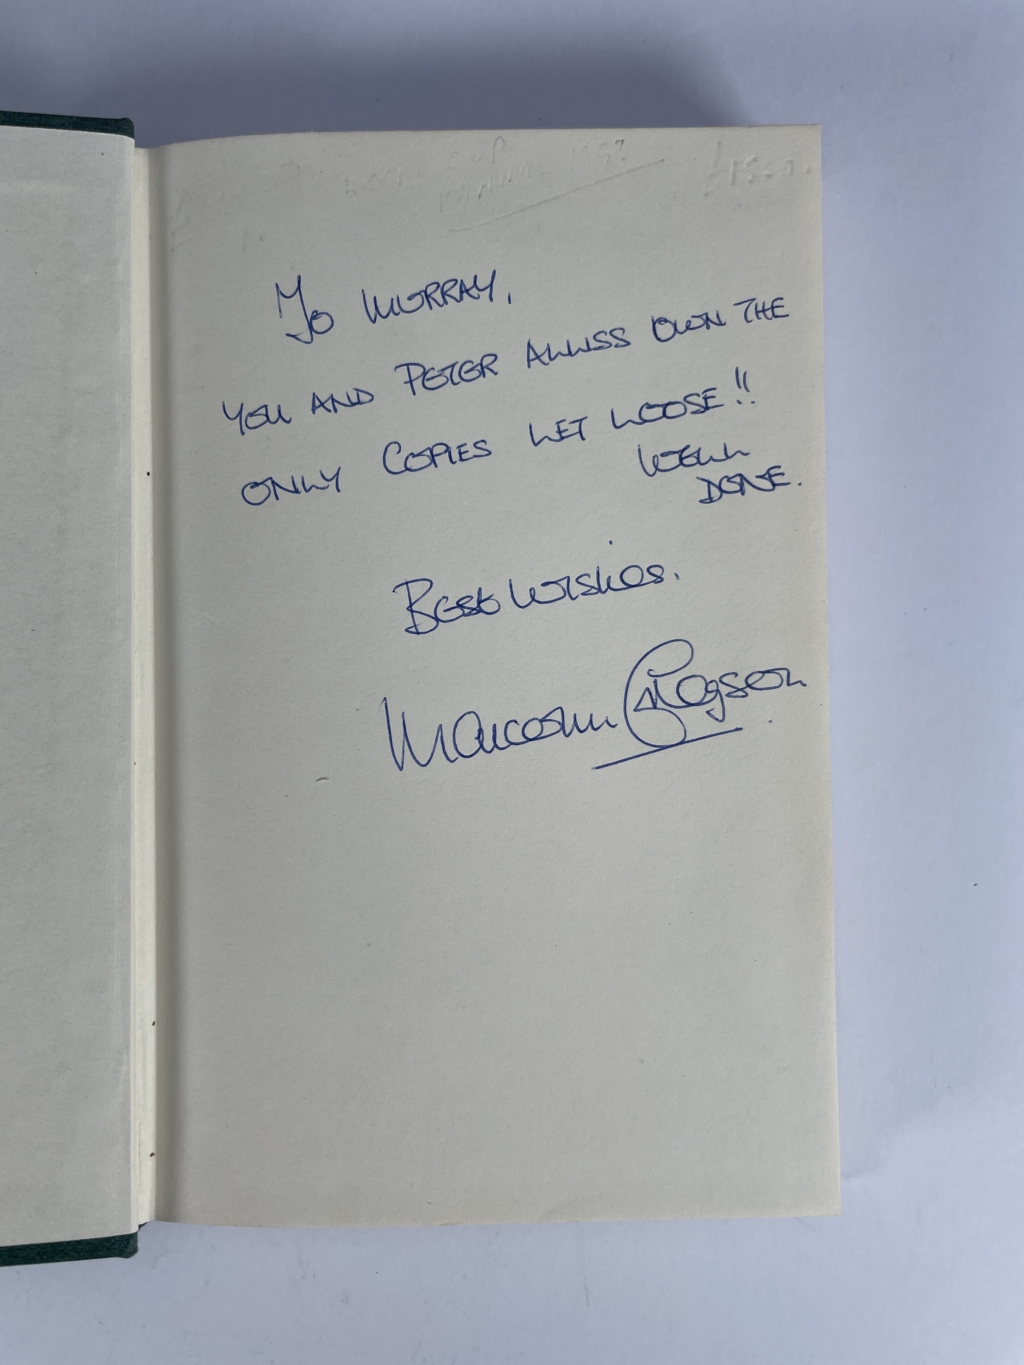 £15.0.
To MURRAY,
YOU AND PETER ALLISS OWN THE
ONLY COPIES LET LOOSE!!
WELL
DONE.
Best Wishes.
Malcolm Gregson